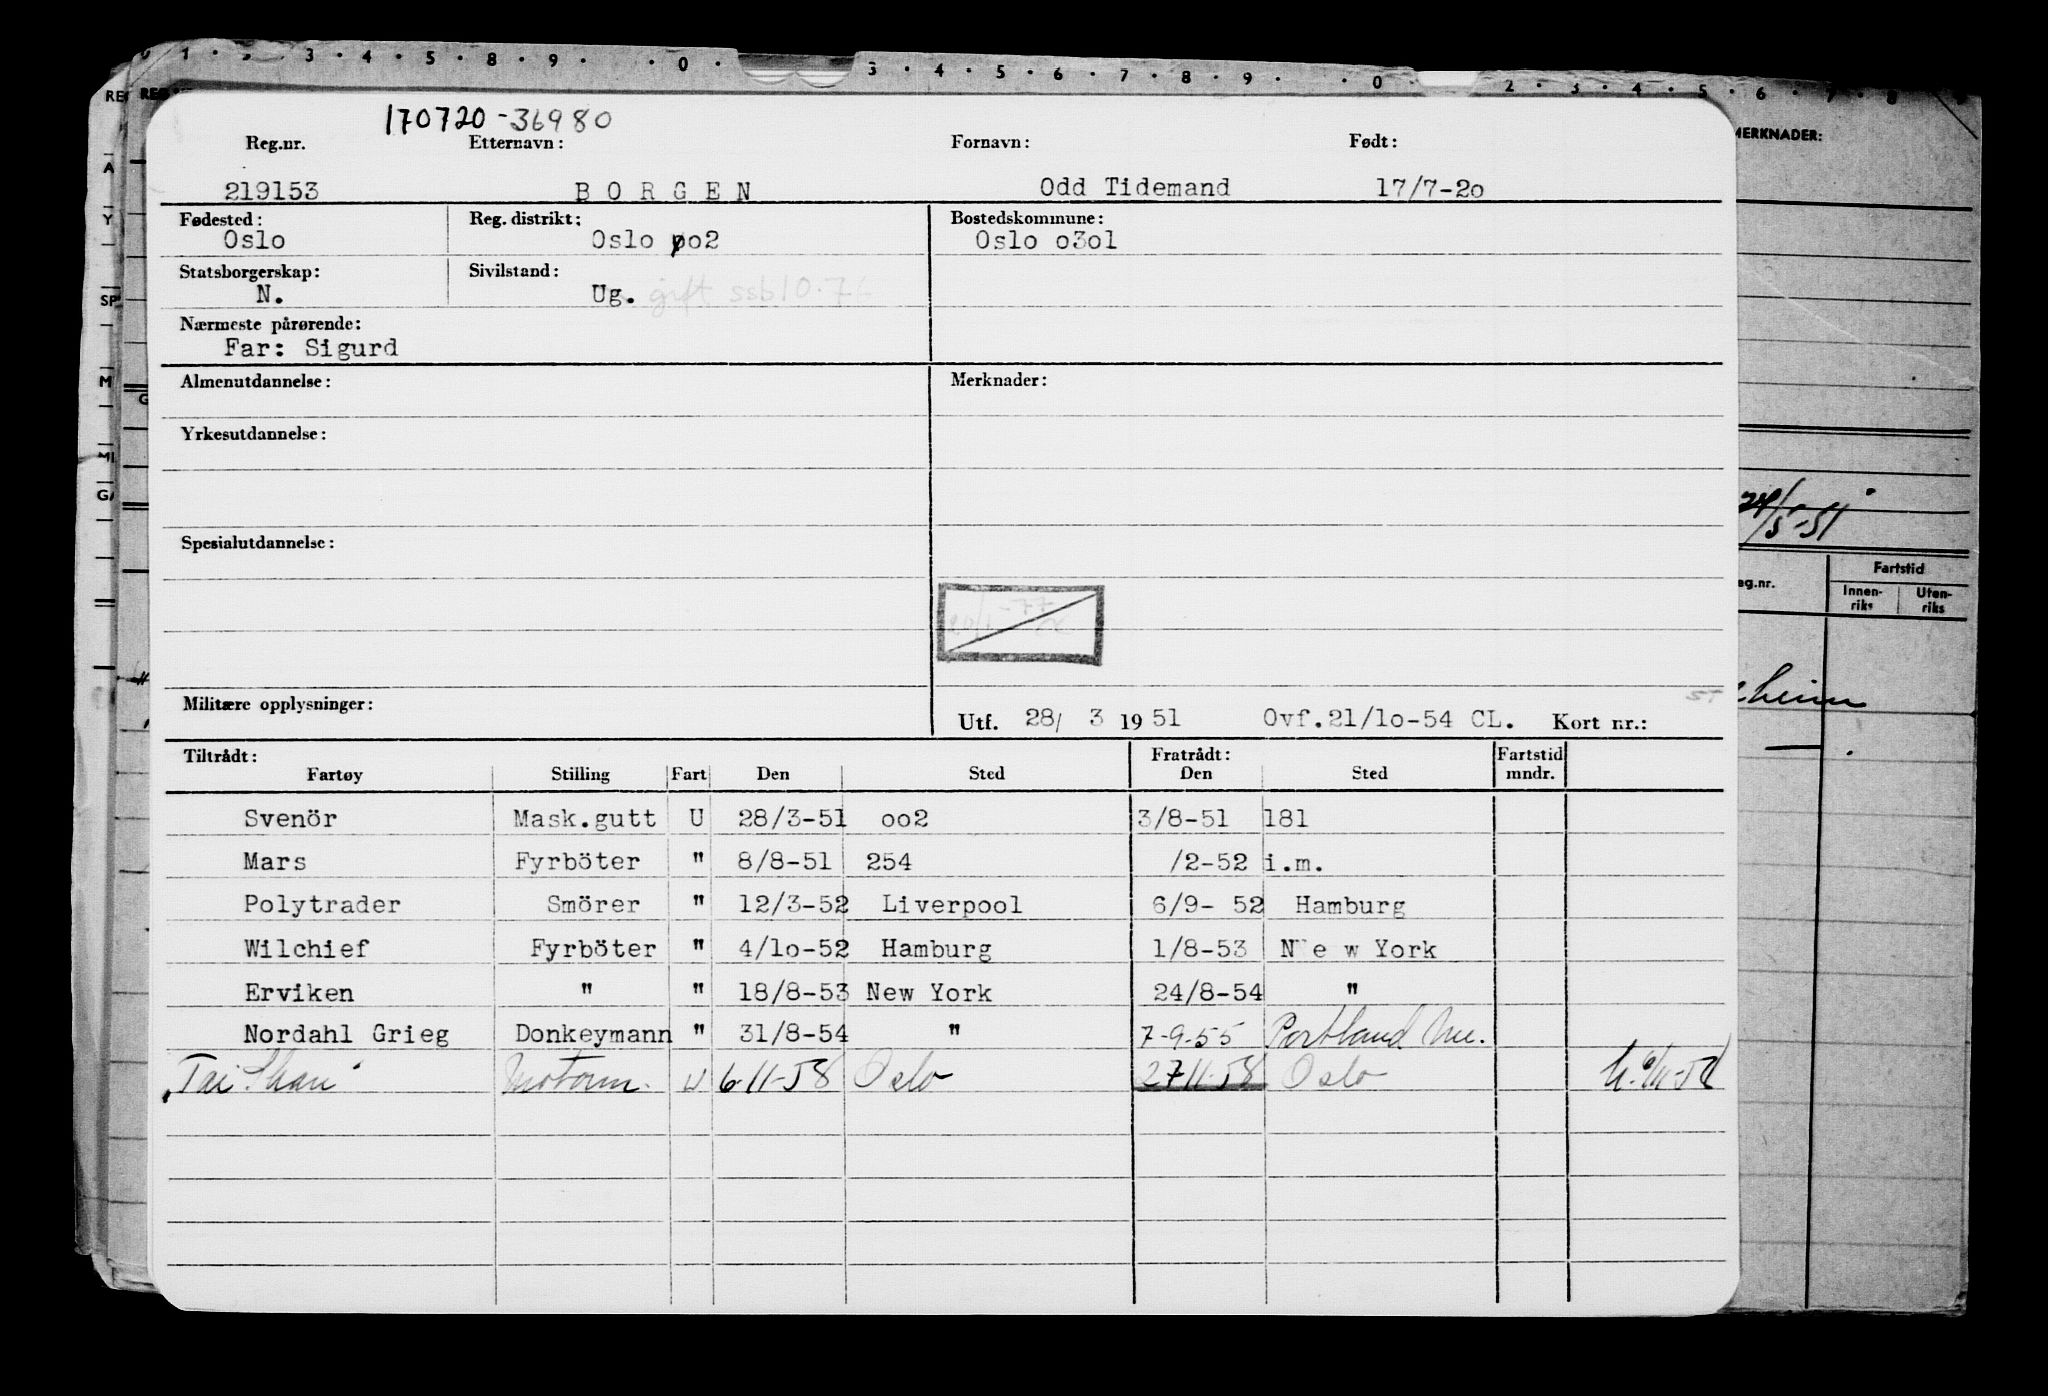 1 · 2 · 3 · 4 · 5 · 8 · 9 · · 0 · 3 · 4 · 5 · 6 · 7 · 8 · 9 · · 0 · 2 · 3 · 4 · 5 · 6 · 7 · 8
170720-36980
MERKNADER:
Reg.nr. Etternavn: Fornavn: Født:
219153 BORGEN Odd Tidemand 17/7-2o
Fødested: Reg. distrikt: Bostedskommune:
Oslo Oslo oo2 Oslo o3ol
Statsborgerskap: Sivilstand:
N. Ug. gift ssb 10.76
Nærmeste pårørende:
Far: Sigurd
Almenutdannelse: Merknader:
Yrkesutdannelse:
24/5-51
Spesialutdannelse:
Fartstid
eg.nr. Innen-riks Uten-riks
-77
heim
Militære opplysninger: Utf. 28/ 3 1951 Ovf.21/lo-54 CL. Kort nr.:
Tiltrådt: Fratrådt: Fartstid
Fartøy Stilling Fart Den Sted Den Sted mndr.
Svenör Mask.gutt U 28/3-51 oo2 3/8-51 181
Mars Fyrböter " 8/8-51 254 /2-52 i.m.
Polytrader Smörer " 12/3-52 Liverpool 6/9- 52 Hamburg
Wilchief Fyrböter " 4/lo-52 Hamburg 1/8-53 Ne w York
Erviken " " 18/8-53 New York 24/8-54 "
Nordahl Grieg Donkeymann " 31/8-54 " 7-9-55 Portland Me.
Tai Shan Motorm. U 6-11-58 Oslo 27 11-58 Oslo